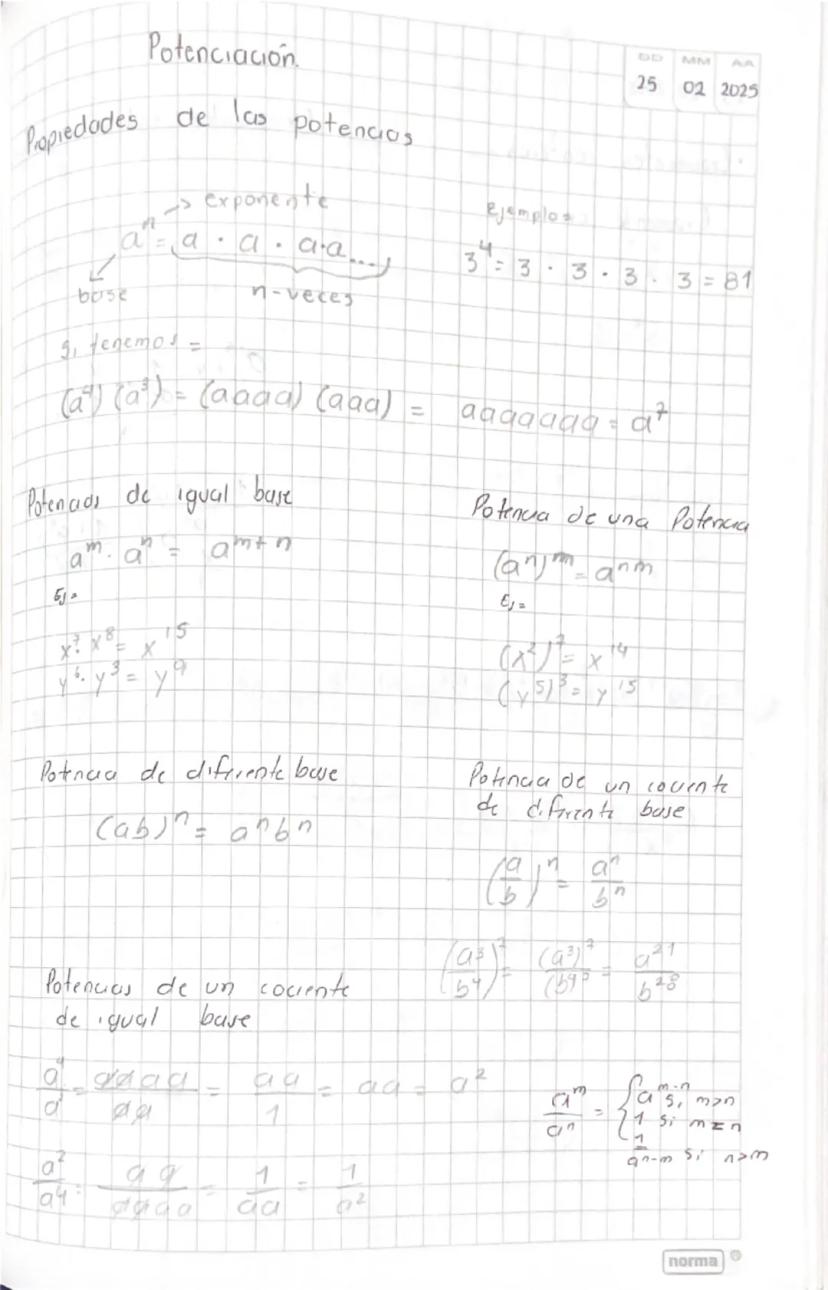 Potenciación.
DD MM AA
25 02 2025
Propiedades de las potencias
→ exponente
aⁿ = a · a · a·a....
base
n-veces
Ejemplos
3⁴ = 3 · 3 · 3 · 3 = 81
Si tenemos =
(a⁴) (a³) = (aaaa) (aaa) = aaaaaaa = a⁷
Potencias de igual base
aᵐ · aⁿ = aᵐ⁺ⁿ
Ej =
x⁷ · x⁸ = x¹⁵
y⁶ · y³ = y⁹
Potencia de una Potencia
(aⁿ)ᵐ = aⁿᵐ
Ej =
(x²)⁷ = x¹⁴
(y⁵)³ = y¹⁵
Potencia de diferente base
(ab)ⁿ = aⁿbⁿ
Potencia de un cociente
de diferente base
(a/b)ⁿ = aⁿ/bⁿ
(a³/b⁴)⁷ = (a³)⁷/(b⁴)⁷ = a²¹/b²⁸
Potencias de un cociente
de igual base
= aaaa/aa = aa/1 = aa = a²
a²/a⁴ = aa/aaaa = 1/aa = 1/a²
aᵐ/aⁿ = { aᵐ⁻ⁿ si m>n
1 si m=n
1/aⁿ⁻ᵐ si n>m
norma